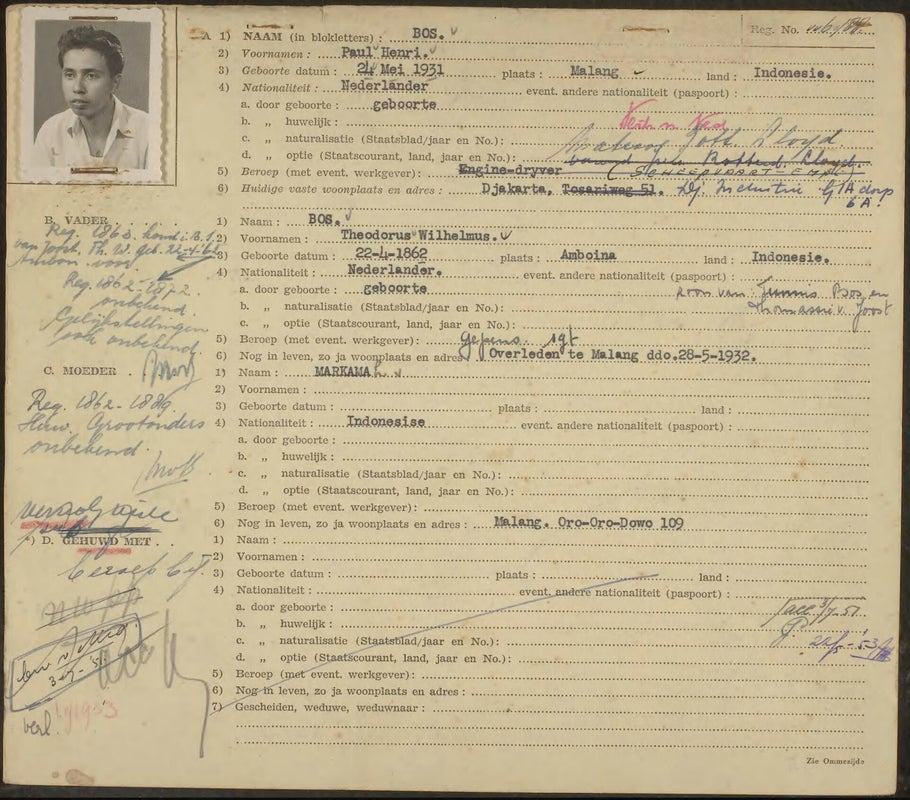 A 1) NAAM (in blokletters) : BOS. Reg. No.
2) Voornamen : Paul Henri.
3) Geboorte datum : 24 Mei 1931 plaats : Malang land : Indonesie.
4) Nationaliteit : Nederlander event. andere nationaliteit (paspoort) :
a. door geboorte : geboorte
b. „ huwelijk :
c. „ naturalisatie (Staatsblad/jaar en No.) :
d. „ optie (Staatscourant, land, jaar en No.) : Lloyd.
5) Beroep (met event. werkgever) : Engine-dryver (SCHEEPVAART-EMPL)
6) Huidige vaste woonplaats en adres : Djakarta, Tosariweg 51. Dj. Industrie
6A.
B. VADER .
1) Naam : BOS.
2) Voornamen : Theodorus Wilhelmus.
3) Geboorte datum : 22-4-1862 plaats : Amboina land : Indonesie.
4) Nationaliteit : Nederlander. event. andere nationaliteit (paspoort) :
a. door geboorte : geboorte zoon van Bos en
b. „ naturalisatie (Staatsblad/jaar en No.) : Joost
c. „ optie (Staatscourant, land, jaar en No.) :
5) Beroep (met event. werkgever) : Gepens. sgt
6) Nog in leven, zo ja woonplaats en adres Overleden te Malang ddo.28-5-1932.
Reg. 1862-1872.
onbekend.
Gelijkstellingen
ook onbekend.
C. MOEDER .
1) Naam : MARKAMAh
2) Voornamen :
3) Geboorte datum : plaats : land :
4) Nationaliteit : Indonesise event. andere nationaliteit (paspoort) :
a. door geboorte :
b. „ huwelijk :
c. „ naturalisatie (Staatsblad/jaar en No.) :
d. „ optie (Staatscourant, land, jaar en No.) :
5) Beroep (met event. werkgever) :
6) Nog in leven, zo ja woonplaats en adres : Malang. Oro-Oro-Dowo 109
Reg. 1862-1889.
Huw. Grootouders
onbekend.
*) D. GEHUWD MET .
1) Naam :
2) Voornamen :
3) Geboorte datum : plaats : land :
4) Nationaliteit : event. andere nationaliteit (paspoort) :
a. door geboorte :
b. „ huwelijk :
c. „ naturalisatie (Staatsblad/jaar en No.) :
d. „ optie (Staatscourant, land, jaar en No.) :
5) Beroep (met event. werkgever) :
6) Nog in leven, zo ja woonplaats en adres :
7) Gescheiden, weduwe, weduwnaar :
Zie Ommezijde